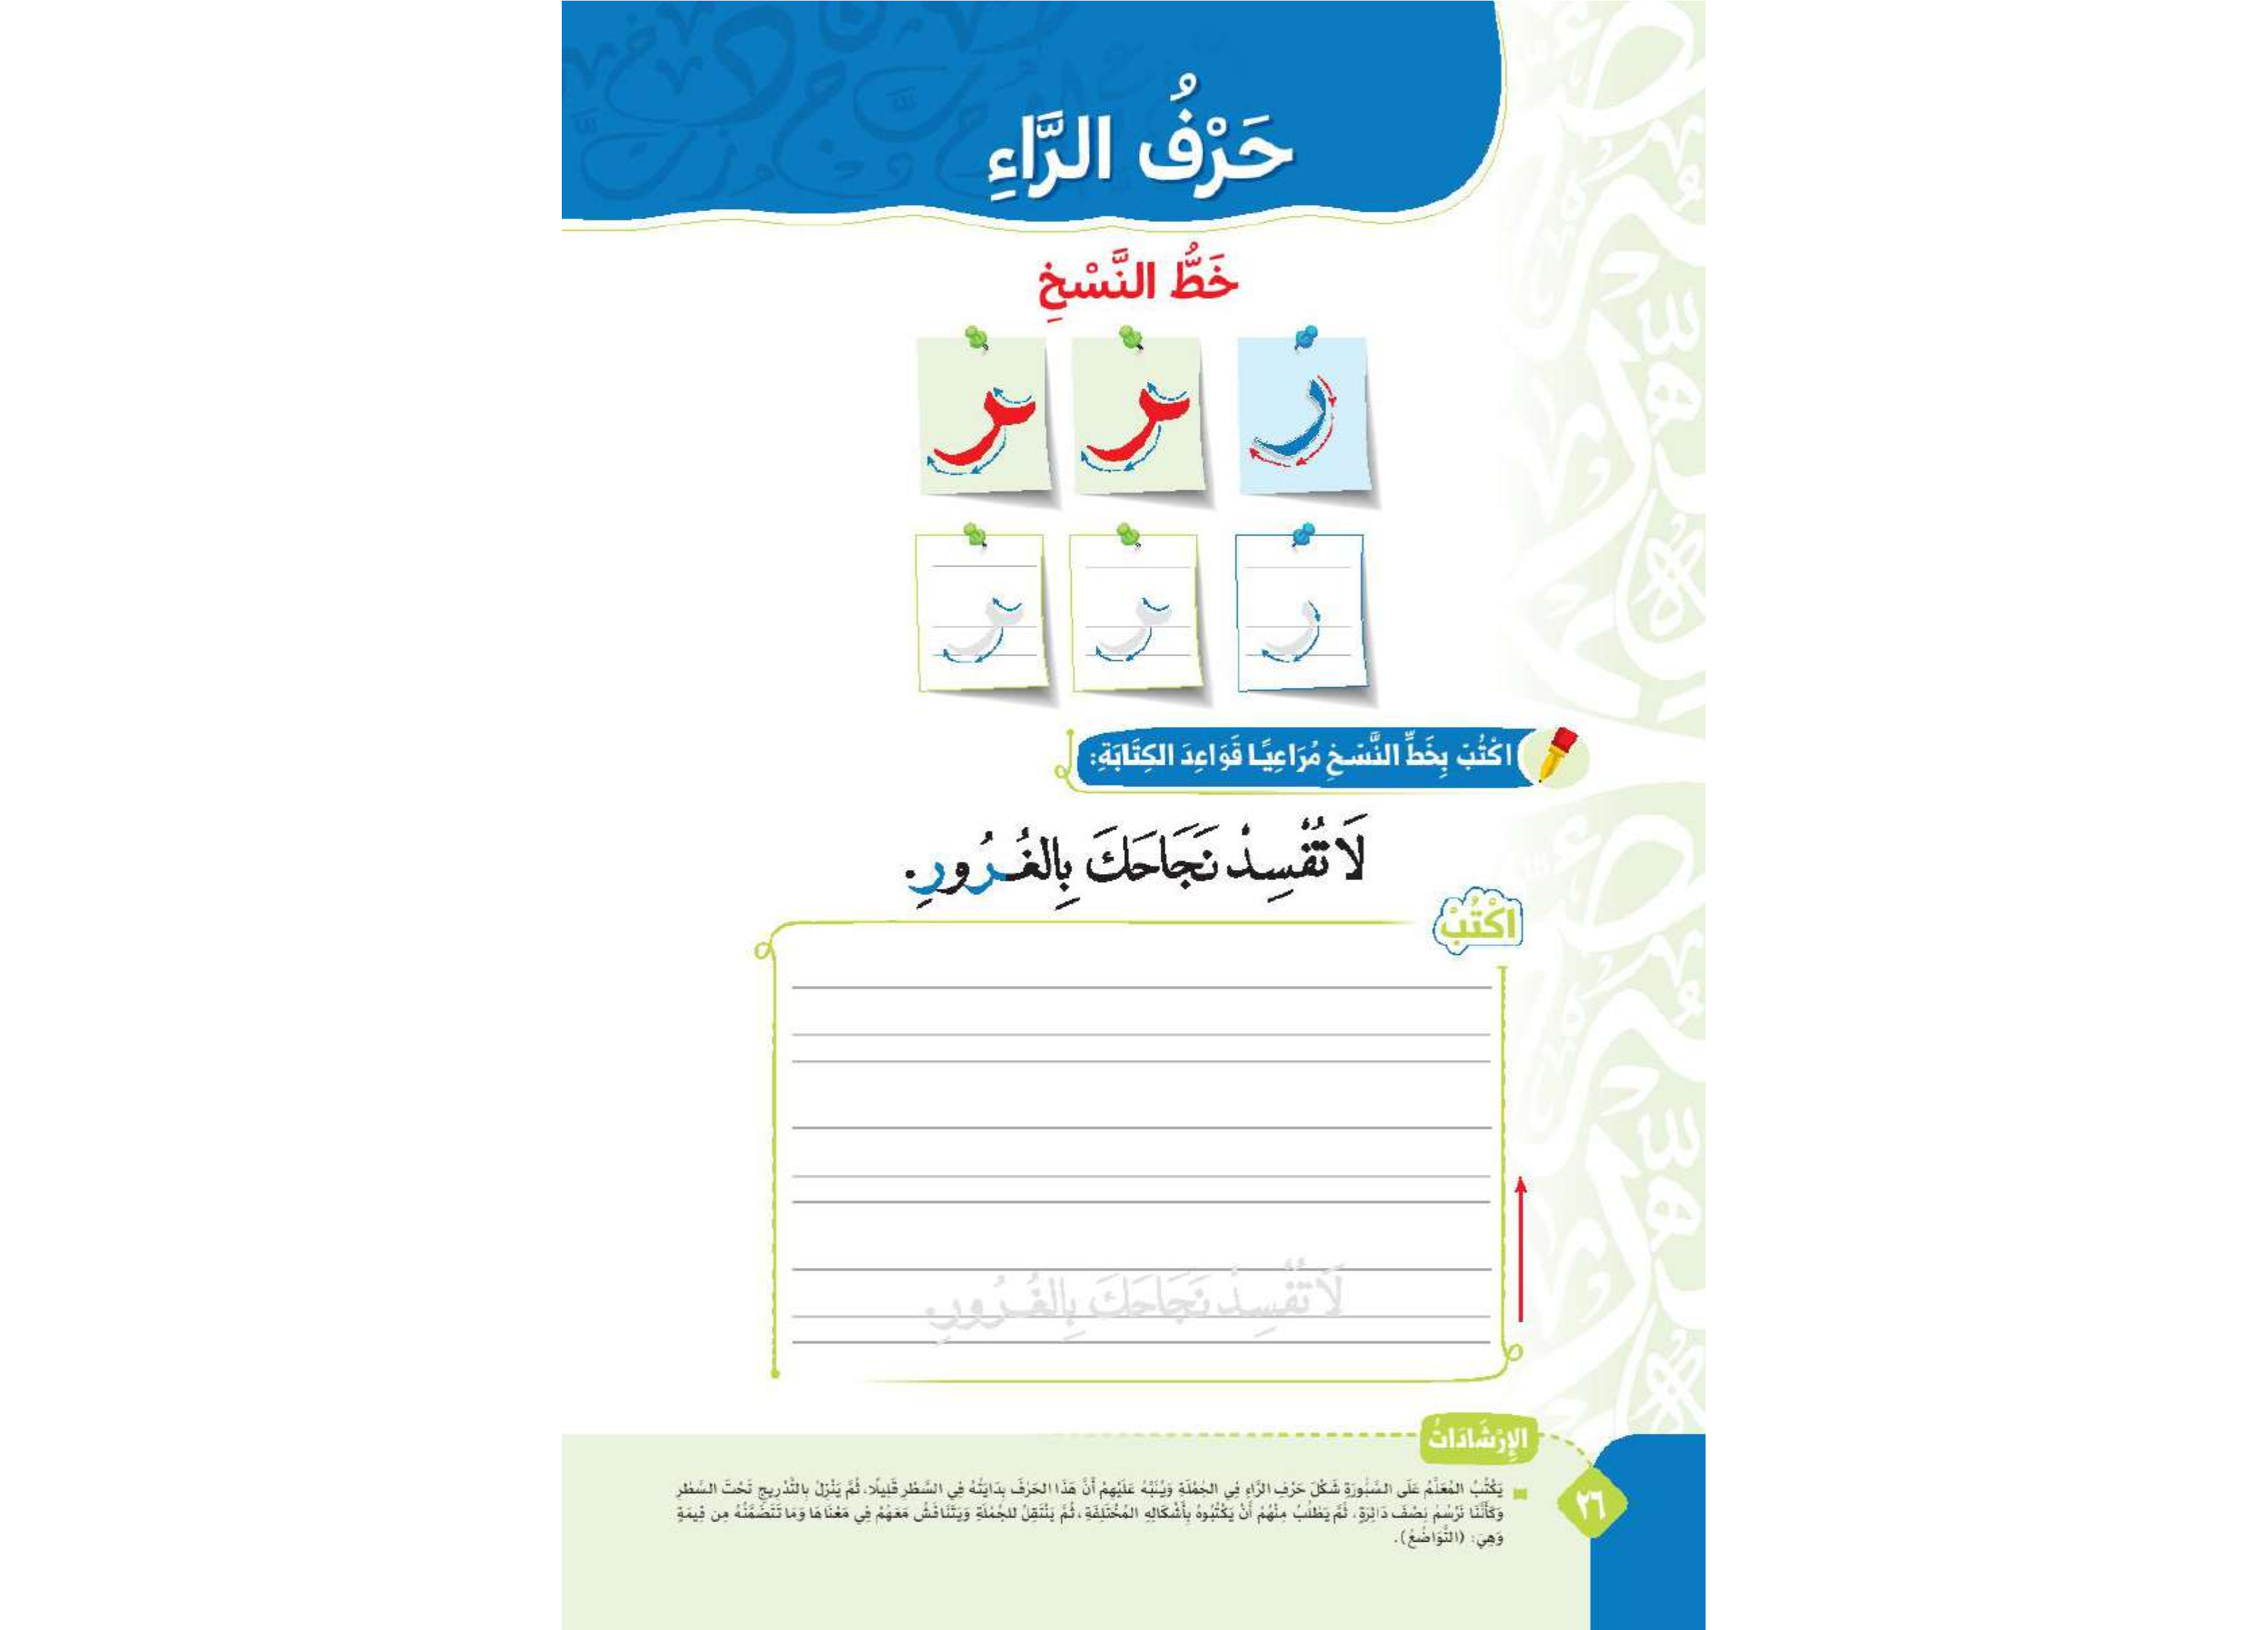 حَرْفُ الرَّاءِ
خَطُّ النَّسْخِ
ر ـر ـر
ر ـر ـر
اكْتُبْ بِخَطِّ النَّسْخِ مُرَاعِيًا قَوَاعِدَ الكِتَابَةِ:
لَا تُفْسِدْ نَجَاحَكَ بِالغُرُورِ.
اكْتُبْ
لَا تُفْسِدْ نَجَاحَكَ بِالغُرُورِ.
الإِرْشَادَاتُ
يَكْتُبُ المُعَلِّمُ عَلَى السَّبُّورَةِ شَكْلَ حَرْفِ الرَّاءِ فِي الجُمْلَةِ وَيُنَبِّهُ عَلَيْهِمْ أَنَّ هَذَا الحَرْفَ بِدَايَتُهُ فِي السَّطْرِ قَلِيلًا، ثُمَّ يَنْزِلُ بِالتَّدْرِيجِ تَحْتَ السَّطْرِ
وَكَأَنَّنَا نَرْسُمُ نِصْفَ دَائِرَةٍ، ثُمَّ يَطْلُبُ مِنْهُمْ أَنْ يَكْتُبُوهُ بِأَشْكَالِهِ المُخْتَلِفَةِ، ثُمَّ يَنْتَقِلُ لِلجُمْلَةِ وَيَتَنَاقَشُ مَعَهُمْ فِي مَعْنَاهَا وَمَا تَتَضَمَّنُهُ مِن قِيمَةٍ
وَهِيَ: (التَّوَاضُعُ).
٢٦